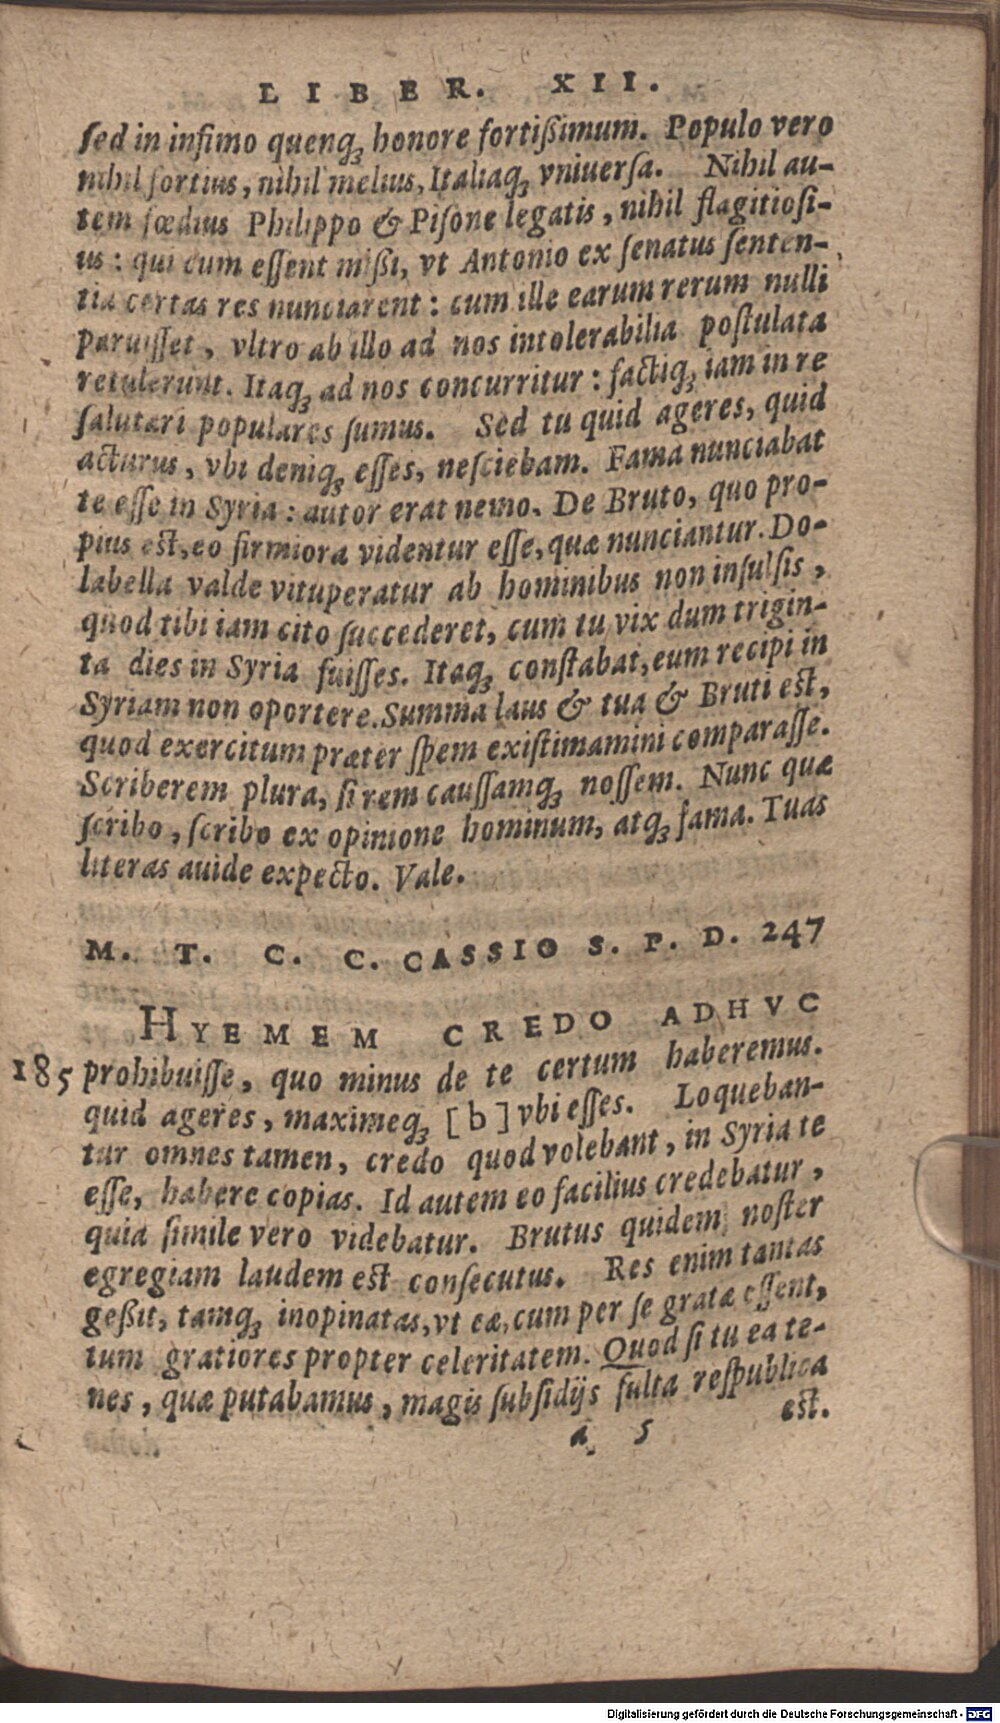 LIBER. XII.
ſed in infimo quenqꝫ honore fortißimum. Populo vero
nihil fortius, nihil melius, Italiaqꝫ vniuerſa. Nihil au-
tem fœdius Philippo & Piſone legatis, nihil flagitioſi-
us: qui cum eſſent mißi, vt Antonio ex ſenatus ſenten-
tia certas res nunciarent: cum ille earum rerum nulli
paruiſſet, vltro ab illo ad nos intolerabilia poſtulata
retulerunt. Itaqꝫ ad nos concurritur: factiqꝫ iam in re
ſalutari populares ſumus. Sed tu quid ageres, quid
acturus, vbi deniqꝫ eſſes, neſciebam. Fama nunciabat
te eſſe in Syria: autor erat nemo. De Bruto, quo pro-
pius est, eo firmiora videntur eſſe, quæ nunciantur. Do-
labella valde vituperatur ab hominibus non inſulſis,
quod tibi iam cito ſuccederet, cum tu vix dum trigin-
ta dies in Syria fuiſſes. Itaqꝫ conſtabat, eum recipi in
Syriam non oportere. Summa laus & tua & Bruti est,
quod exercitum præter ſpem existimamini comparaſſe.
Scriberem plura, ſi rem cauſſamqꝫ noſſem. Nunc quæ
ſcribo, ſcribo ex opinione hominum, atqꝫ fama. Tuas
literas auide expecto. Vale.
M. T. C. C. CASSIO S. P. D. 247
HYEMEM CREDO ADHVC
185 prohibuiſſe, quo minus de te certum haberemus.
quid ageres, maximeqꝫ [b] vbi eſſes. Loqueban-
tur omnes tamen, credo quod volebant, in Syria te
eſſe, habere copias. Id autem eo facilius credebatur,
quia ſimile vero videbatur. Brutus quidem noſter
egregiam laudem est conſecutus. Res enim tantas
geßit, tamqꝫ inopinatas, vt eæ, cum per ſe gratæ eſſent,
tum gratiores propter celeritatem. Quod ſi tu ea te-
nes, quæ putabamus, magis ſubſidijs fulta reſpublica
a 5 est.
Digitalisierung gefördert durch die Deutsche Forschungsgemeinschaft - DFG